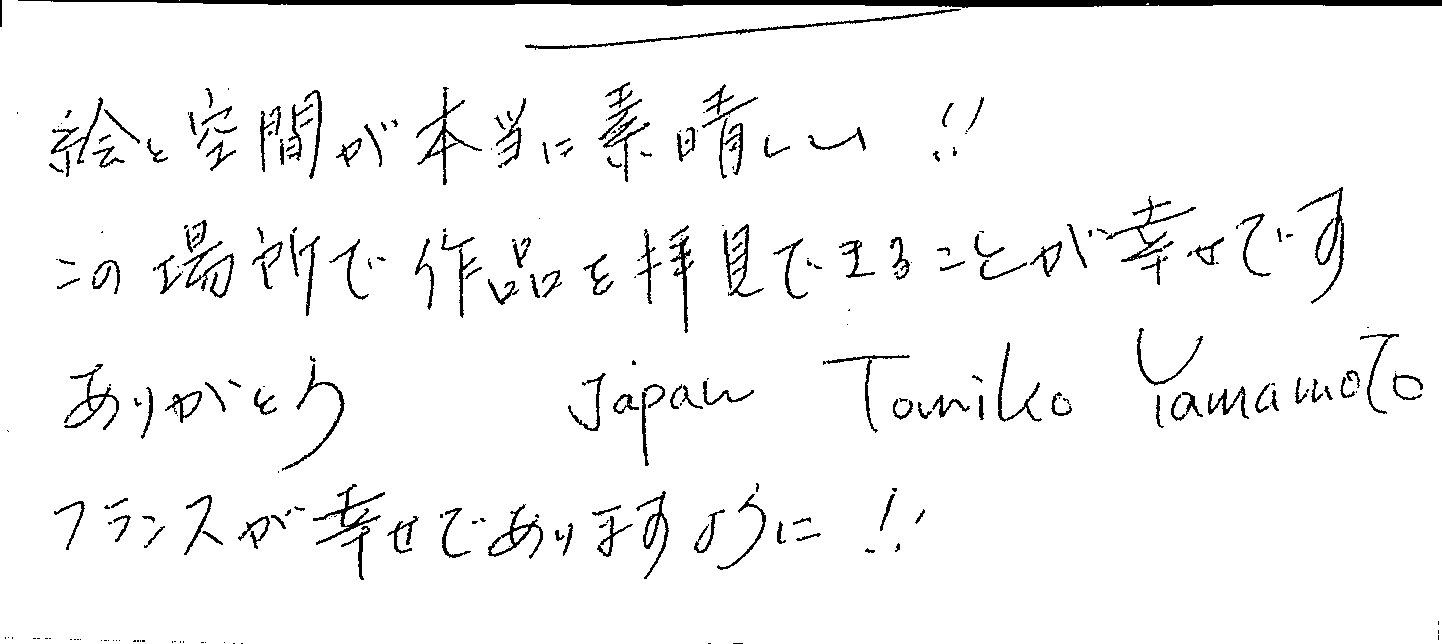 絵と空間が本当に素晴しい!!
この場所で作品を拝見できることが幸せです
ありがとう Japan Tomiko Yamamoto
フランスが幸せでありますように!!